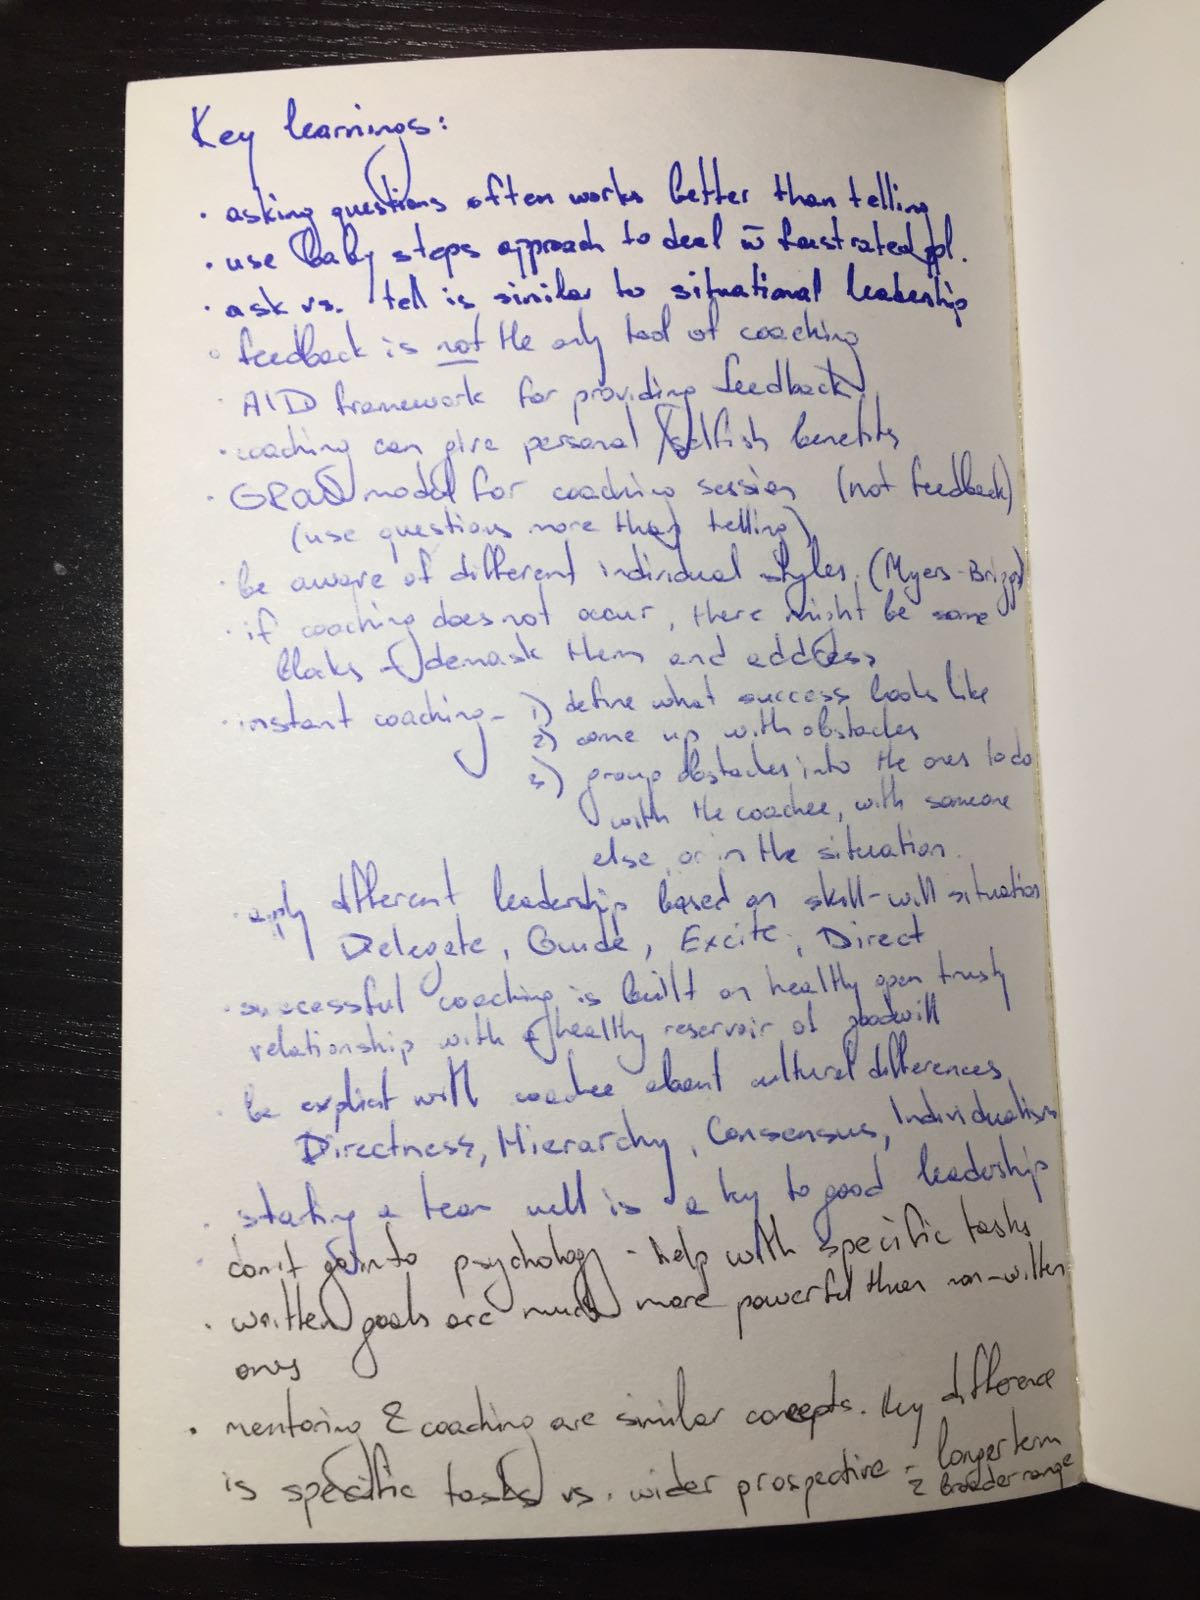 Key learnings:
• asking questions often works better than telling
• use baby steps approach to deal w̄ frustrated ppl.
• ask vs. tell is similar to situational leadership
• feedback is not the only tool of coaching
• AID framework for providing feedback
• coaching can give personal/selfish benefits
• GROW model for coaching session (not feedback)
(use questions more than telling)
• be aware of different individual styles. (Myers-Briggs)
• if coaching does not occur, there might be some
bloks - demask them and address
• instant coaching - 1) define what success looks like
2) come up with obstacles
3) group obstacles into the ones to do
with the coachee, with someone
else, or in the situation.
• apply different leadership based on skill-will situation
Delegate, Guide, Excite, Direct
• successful coaching is built on healthy open trusty
relationship with a healthy reservoir of goodwill
• be explicit with coachee about cultural differences
Directness, Hierarchy, Consensus, Individualism
• starting a team well is a key to good leadership
• don't go into psychology - help with specific tasks
• written goals are much more powerful than non-witten
ones
• mentoring & coaching are similar concepts. Key difference
is specific tasks vs. wider prospective - longer term
& broader range